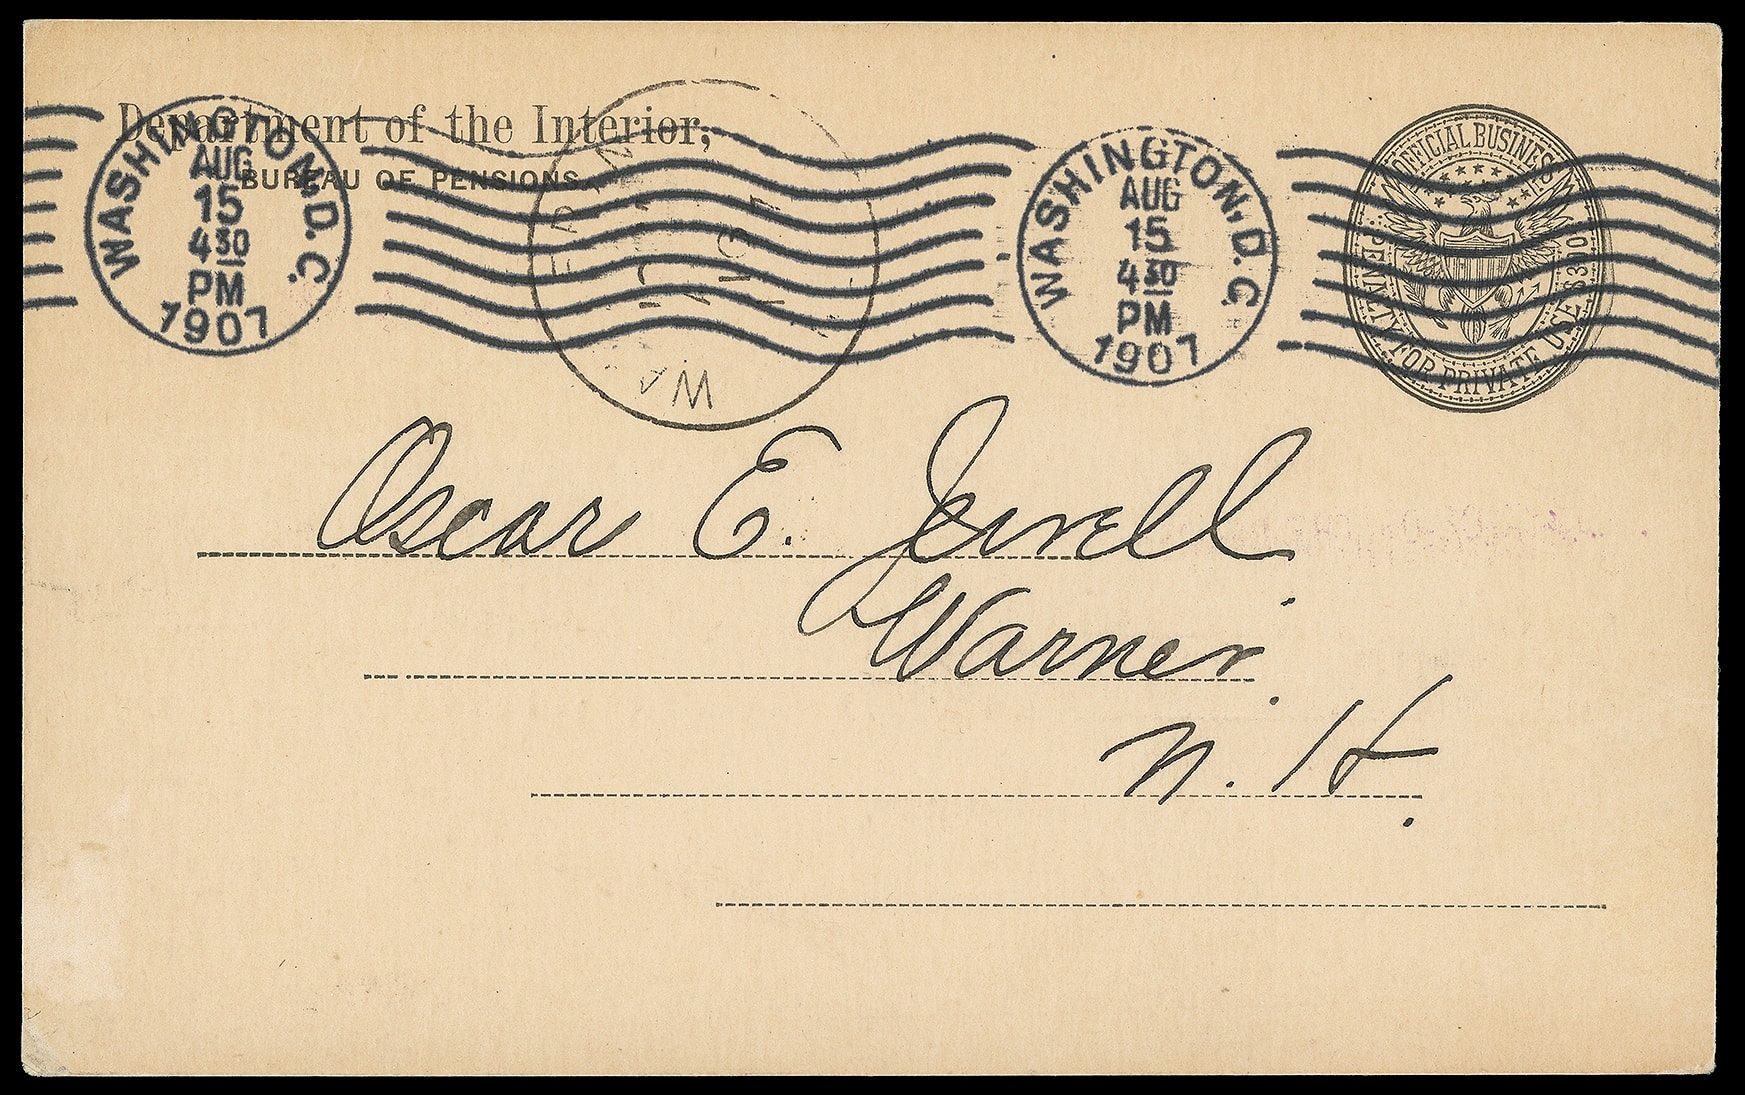 Department of the Interior,
BUREAU OF PENSIONS.
WASHINGTON, D.C.
AUG
15
4 30
PM
1907
WASHINGTON, D.C.
AUG
15
4 30
PM
1907
OFFICIAL BUSINESS
PENALTY FOR PRIVATE USE $300
Oscar E. Jewell
Warner
N. H.